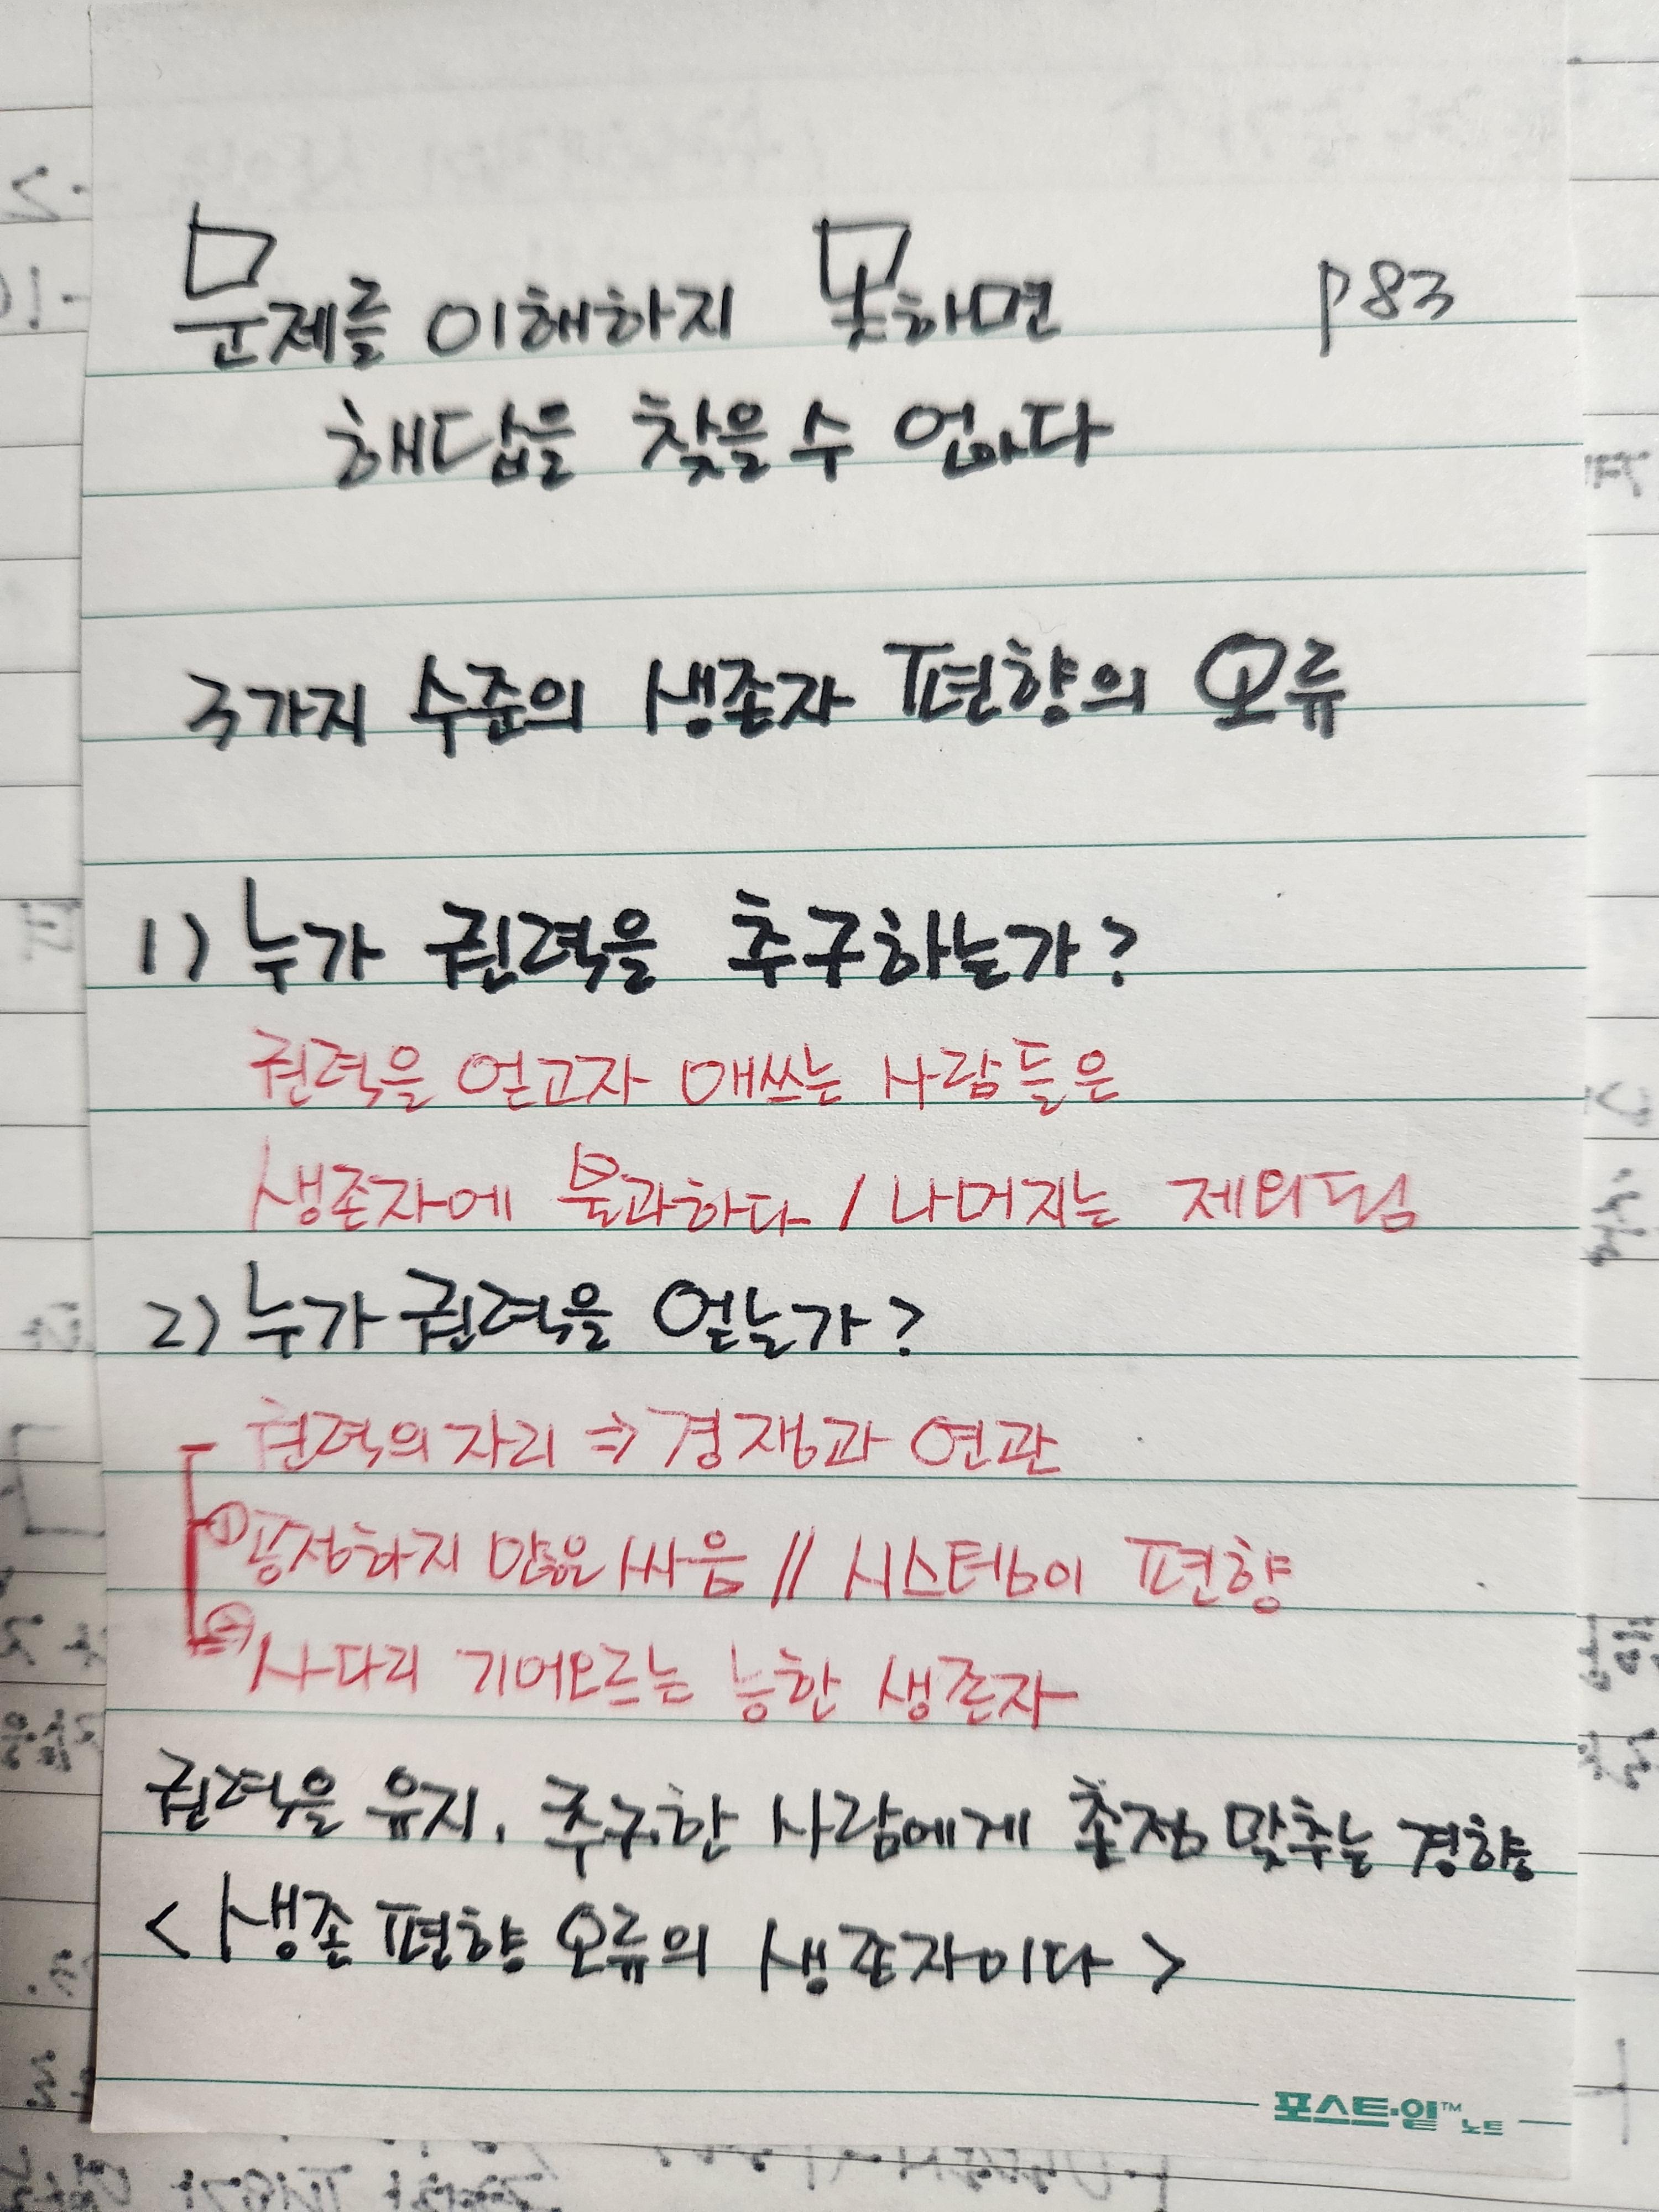 문제를 이해하지 못하면 p83
해답을 찾을 수 없다
3가지 수준의 생존자 편향의 오류
1) 누가 권력을 추구하는가?
권력을 얻고자 애쓰는 사람들은
생존자에 불과하다 / 나머지는 제외됨
2) 누가 권력을 얻는가?
권력의 자리 => 경쟁과 연관
① 공정하지 않은 싸움 // 시스템이 편향
② 사다리 기어오르는 능한 생존자
권력을 유지, 추구한 사람에게 초점 맞추는 경향
< 생존 편향 오류의 생존자이다 >
포스트-잇™ 노트